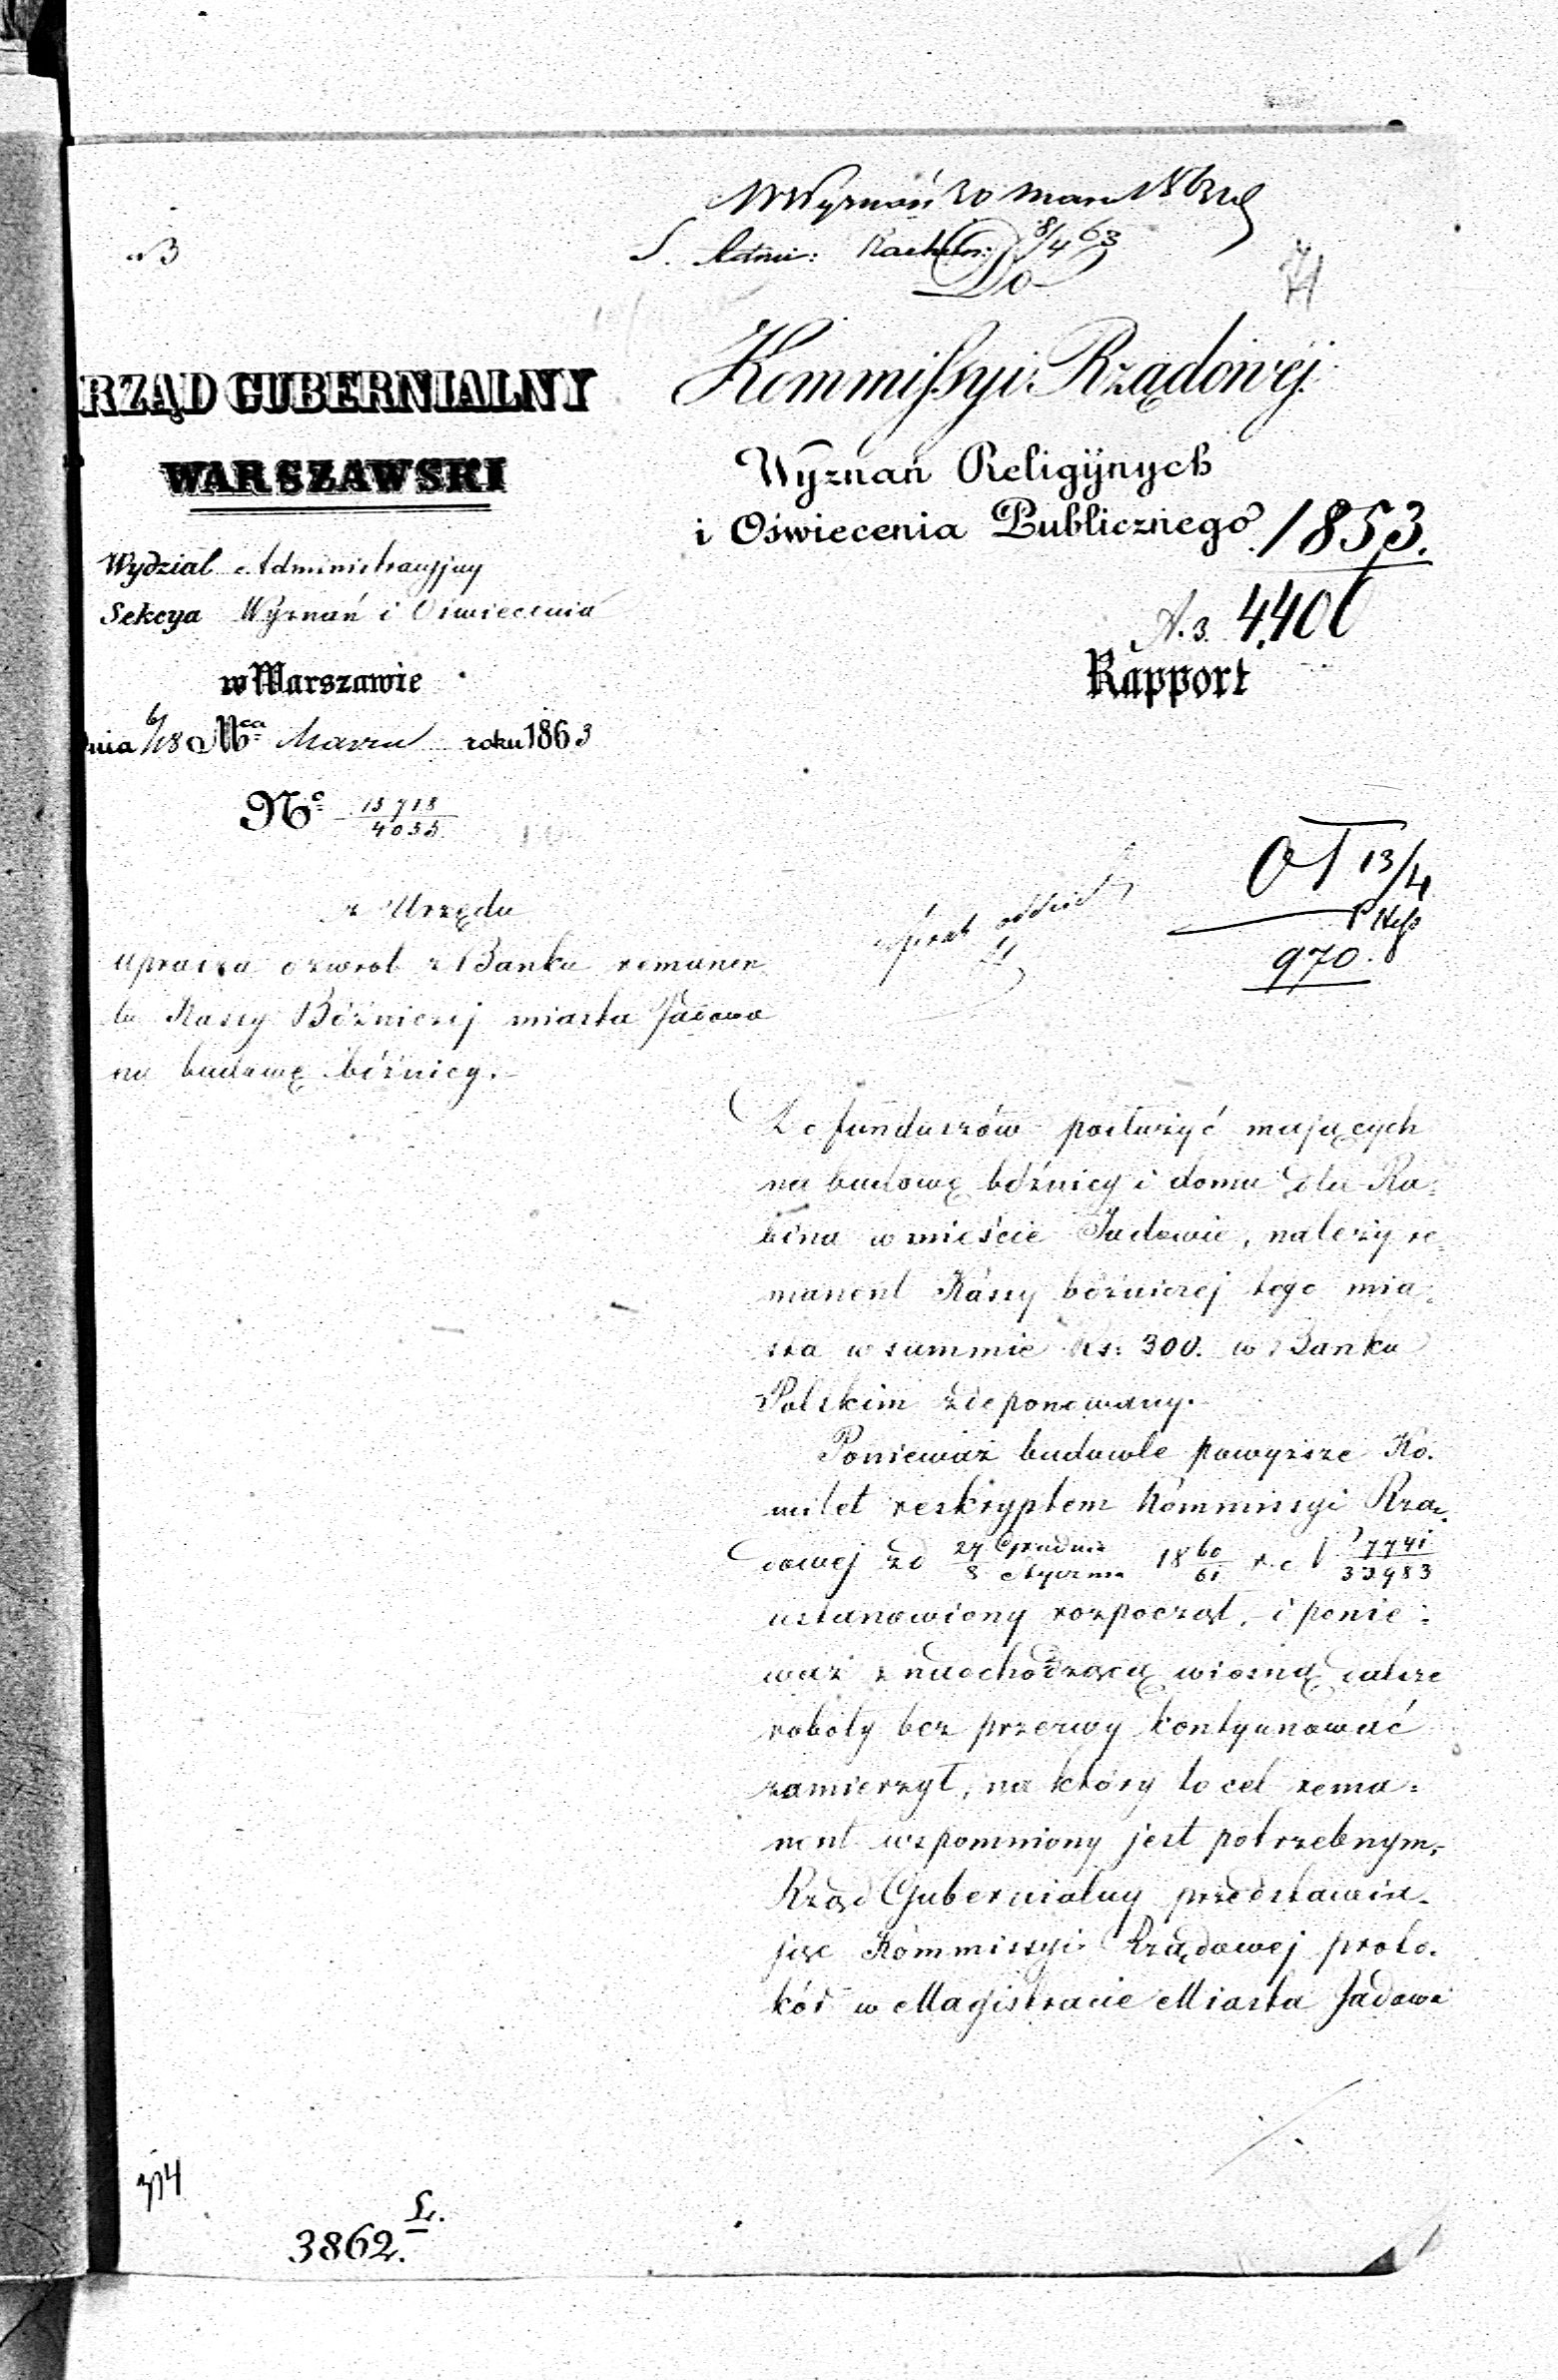 WWyznań 20 Marca
S. Adm: Rachun: 8/4 63
Do
Kommissyi Rządowéj
Wyznań Religijnych
i Oświecenia Publicznego
1853.
A. 3. 4406
Rapport
RZĄD GUBERNIALNY
WARSZAWSKI
Wydział Administracyjny
Sekcya Wyznań i Oświecenia
w Warszawie
dnia 6/18 Marca roku 1863
N° 15718/4055
z Urzędu
uprasza o zwrot z Banku remanen
tu Kassy Bóżniczej miasta Jadowa
na budowę bóżnicy.
OT 13/4
970.
Do funduszów posłużyć mających
na budowę bóżnicy i domu dla Ra-
bina w mieście Jadowie, należy re-
manent Kassy bóżniczej tego mia-
sta w summie Rs: 300. w Banku
Polskim zdeponowany.
Ponieważ budowle powyższe Ko-
mitet reskryptem Kommissyi Rzą-
dowej zd 27 Grudnia/8 Stycznia 1860/61 r. N 7741/33983
ustanowiony rozpoczął, i ponie-
waż z nadchodzącą wiosną dalsze
roboty bez przerwy kontynuować
zamierzył, na który to cel rema-
nent wspomniony jest potrzebnym,
Rząd Gubernialny przedstawia-
jąc Kommissyi Rządowej proto-
kół w Magistracie Miasta Jadowa
374
3862. L.